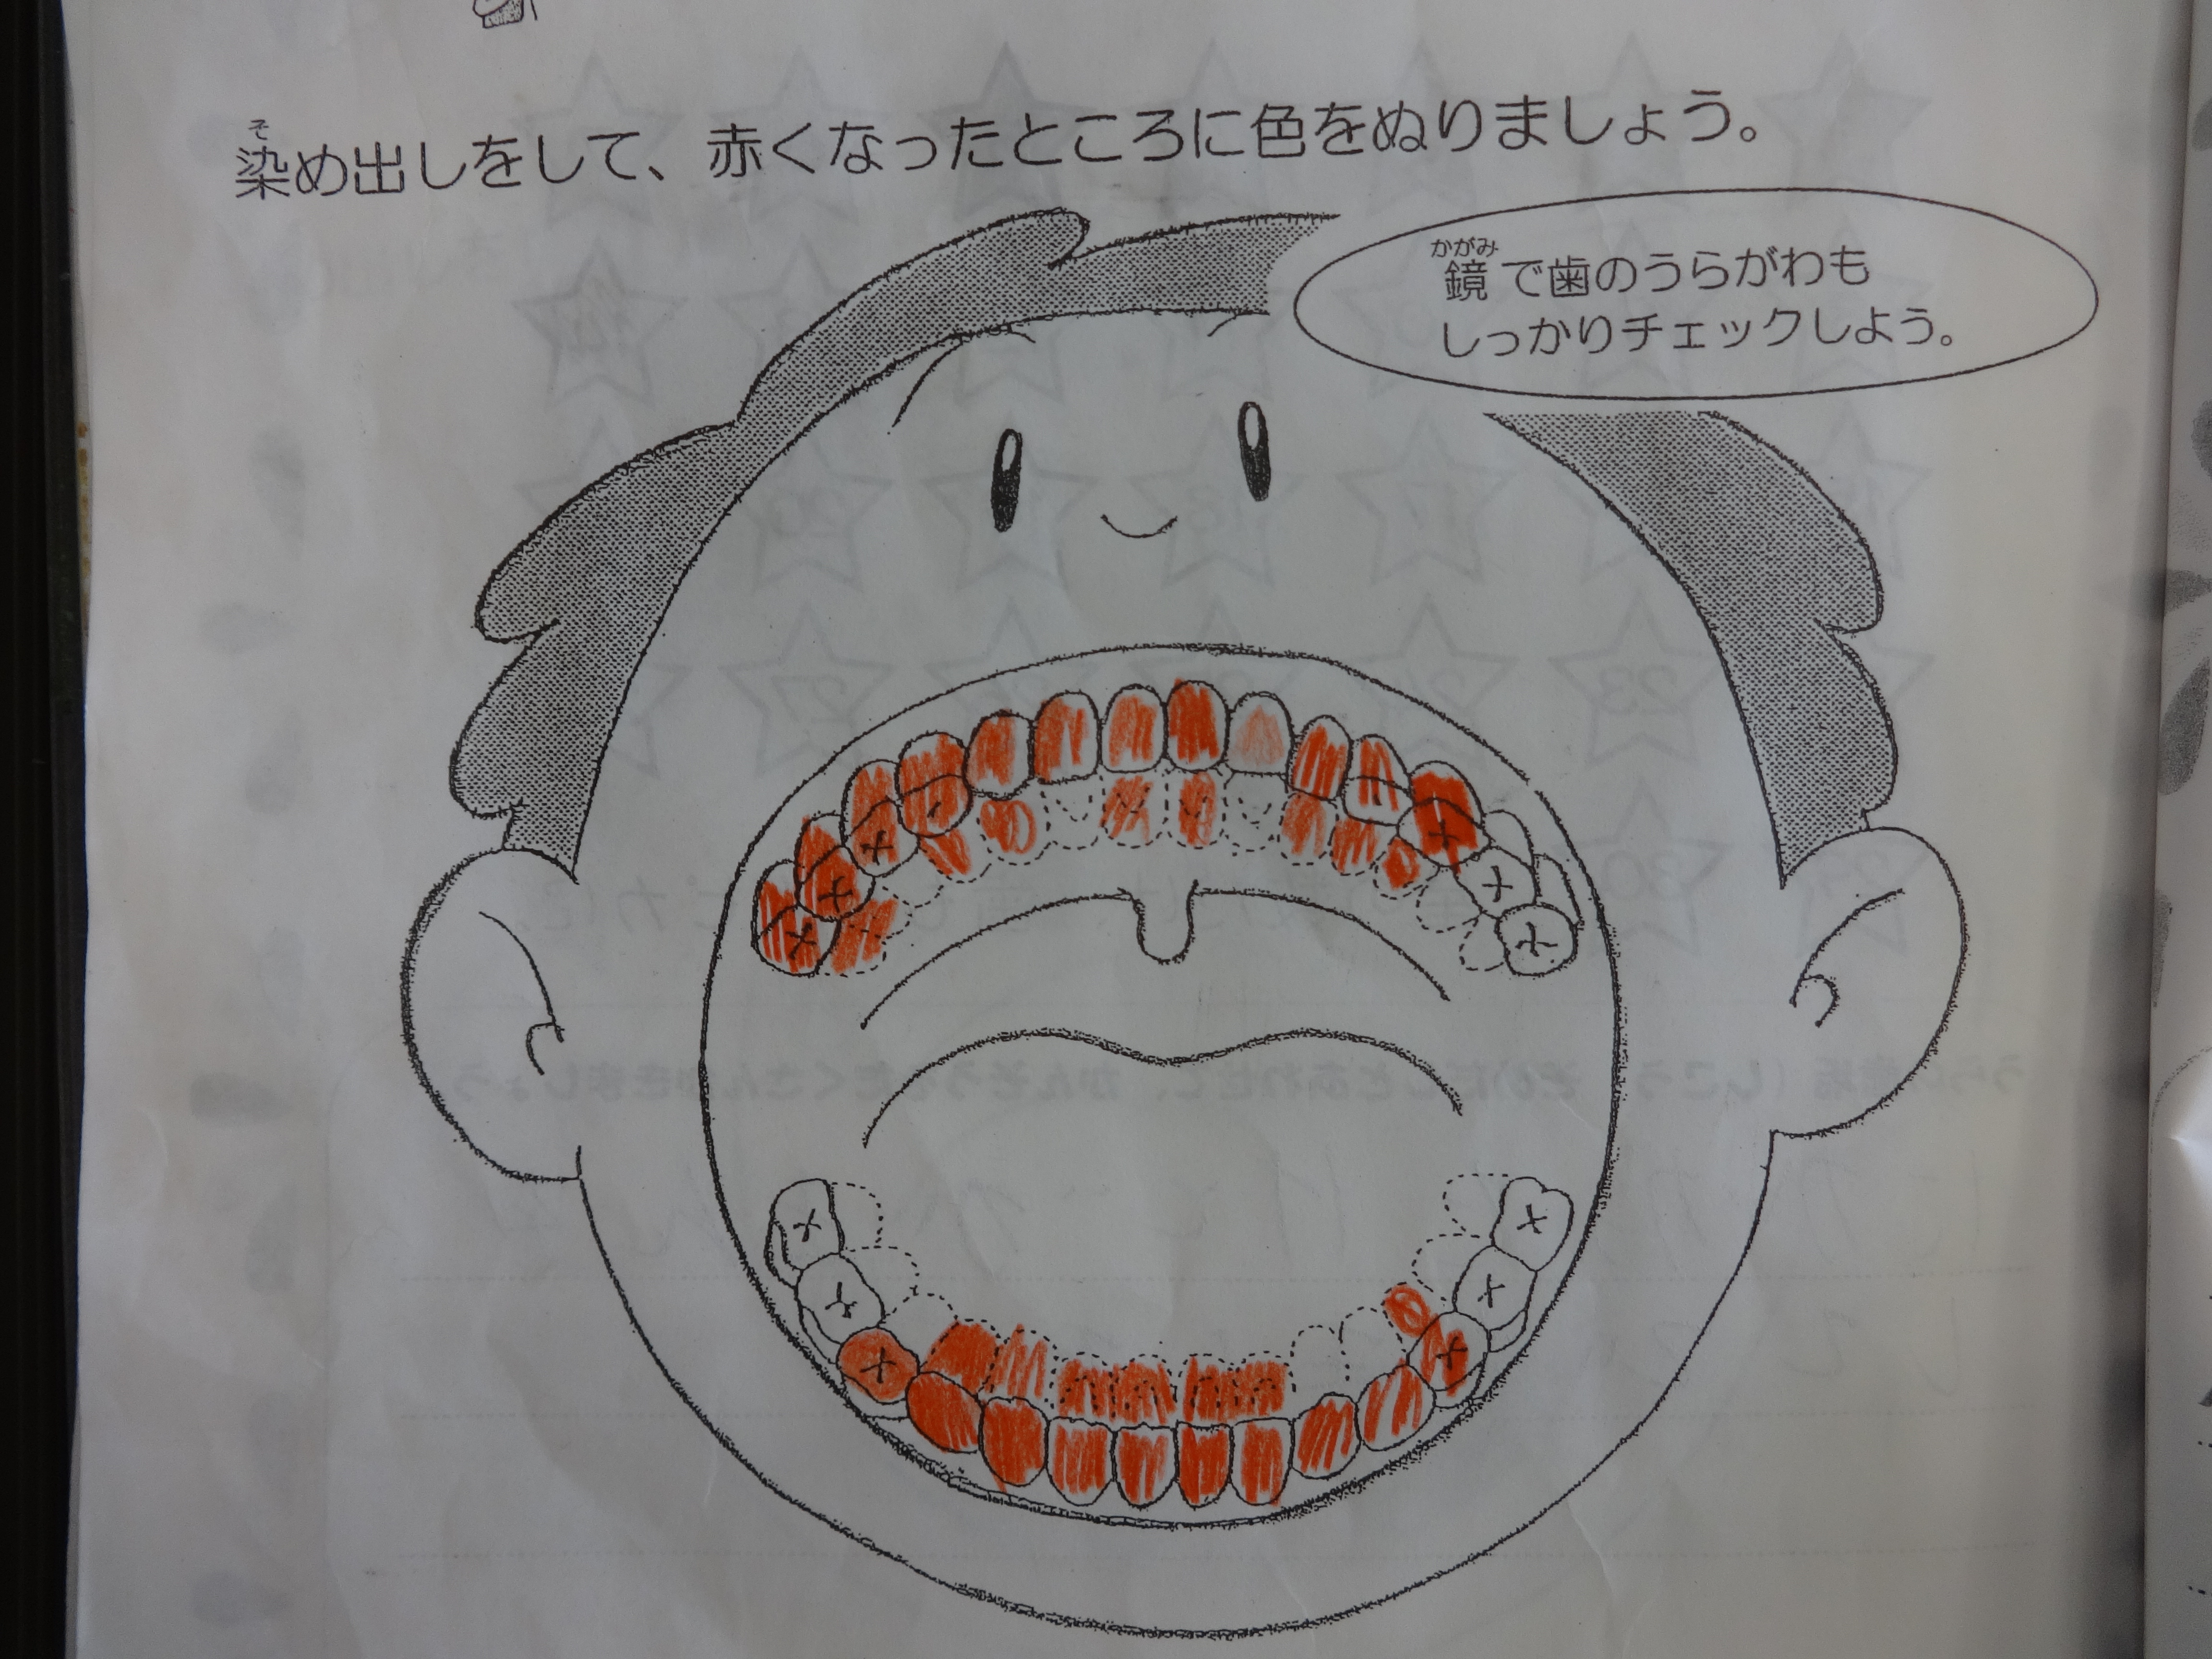 染め出しをして、赤くなったところに色をぬりましょう。
そ
かがみ
鏡で歯のうらがわも
しっかりチェックしよう。